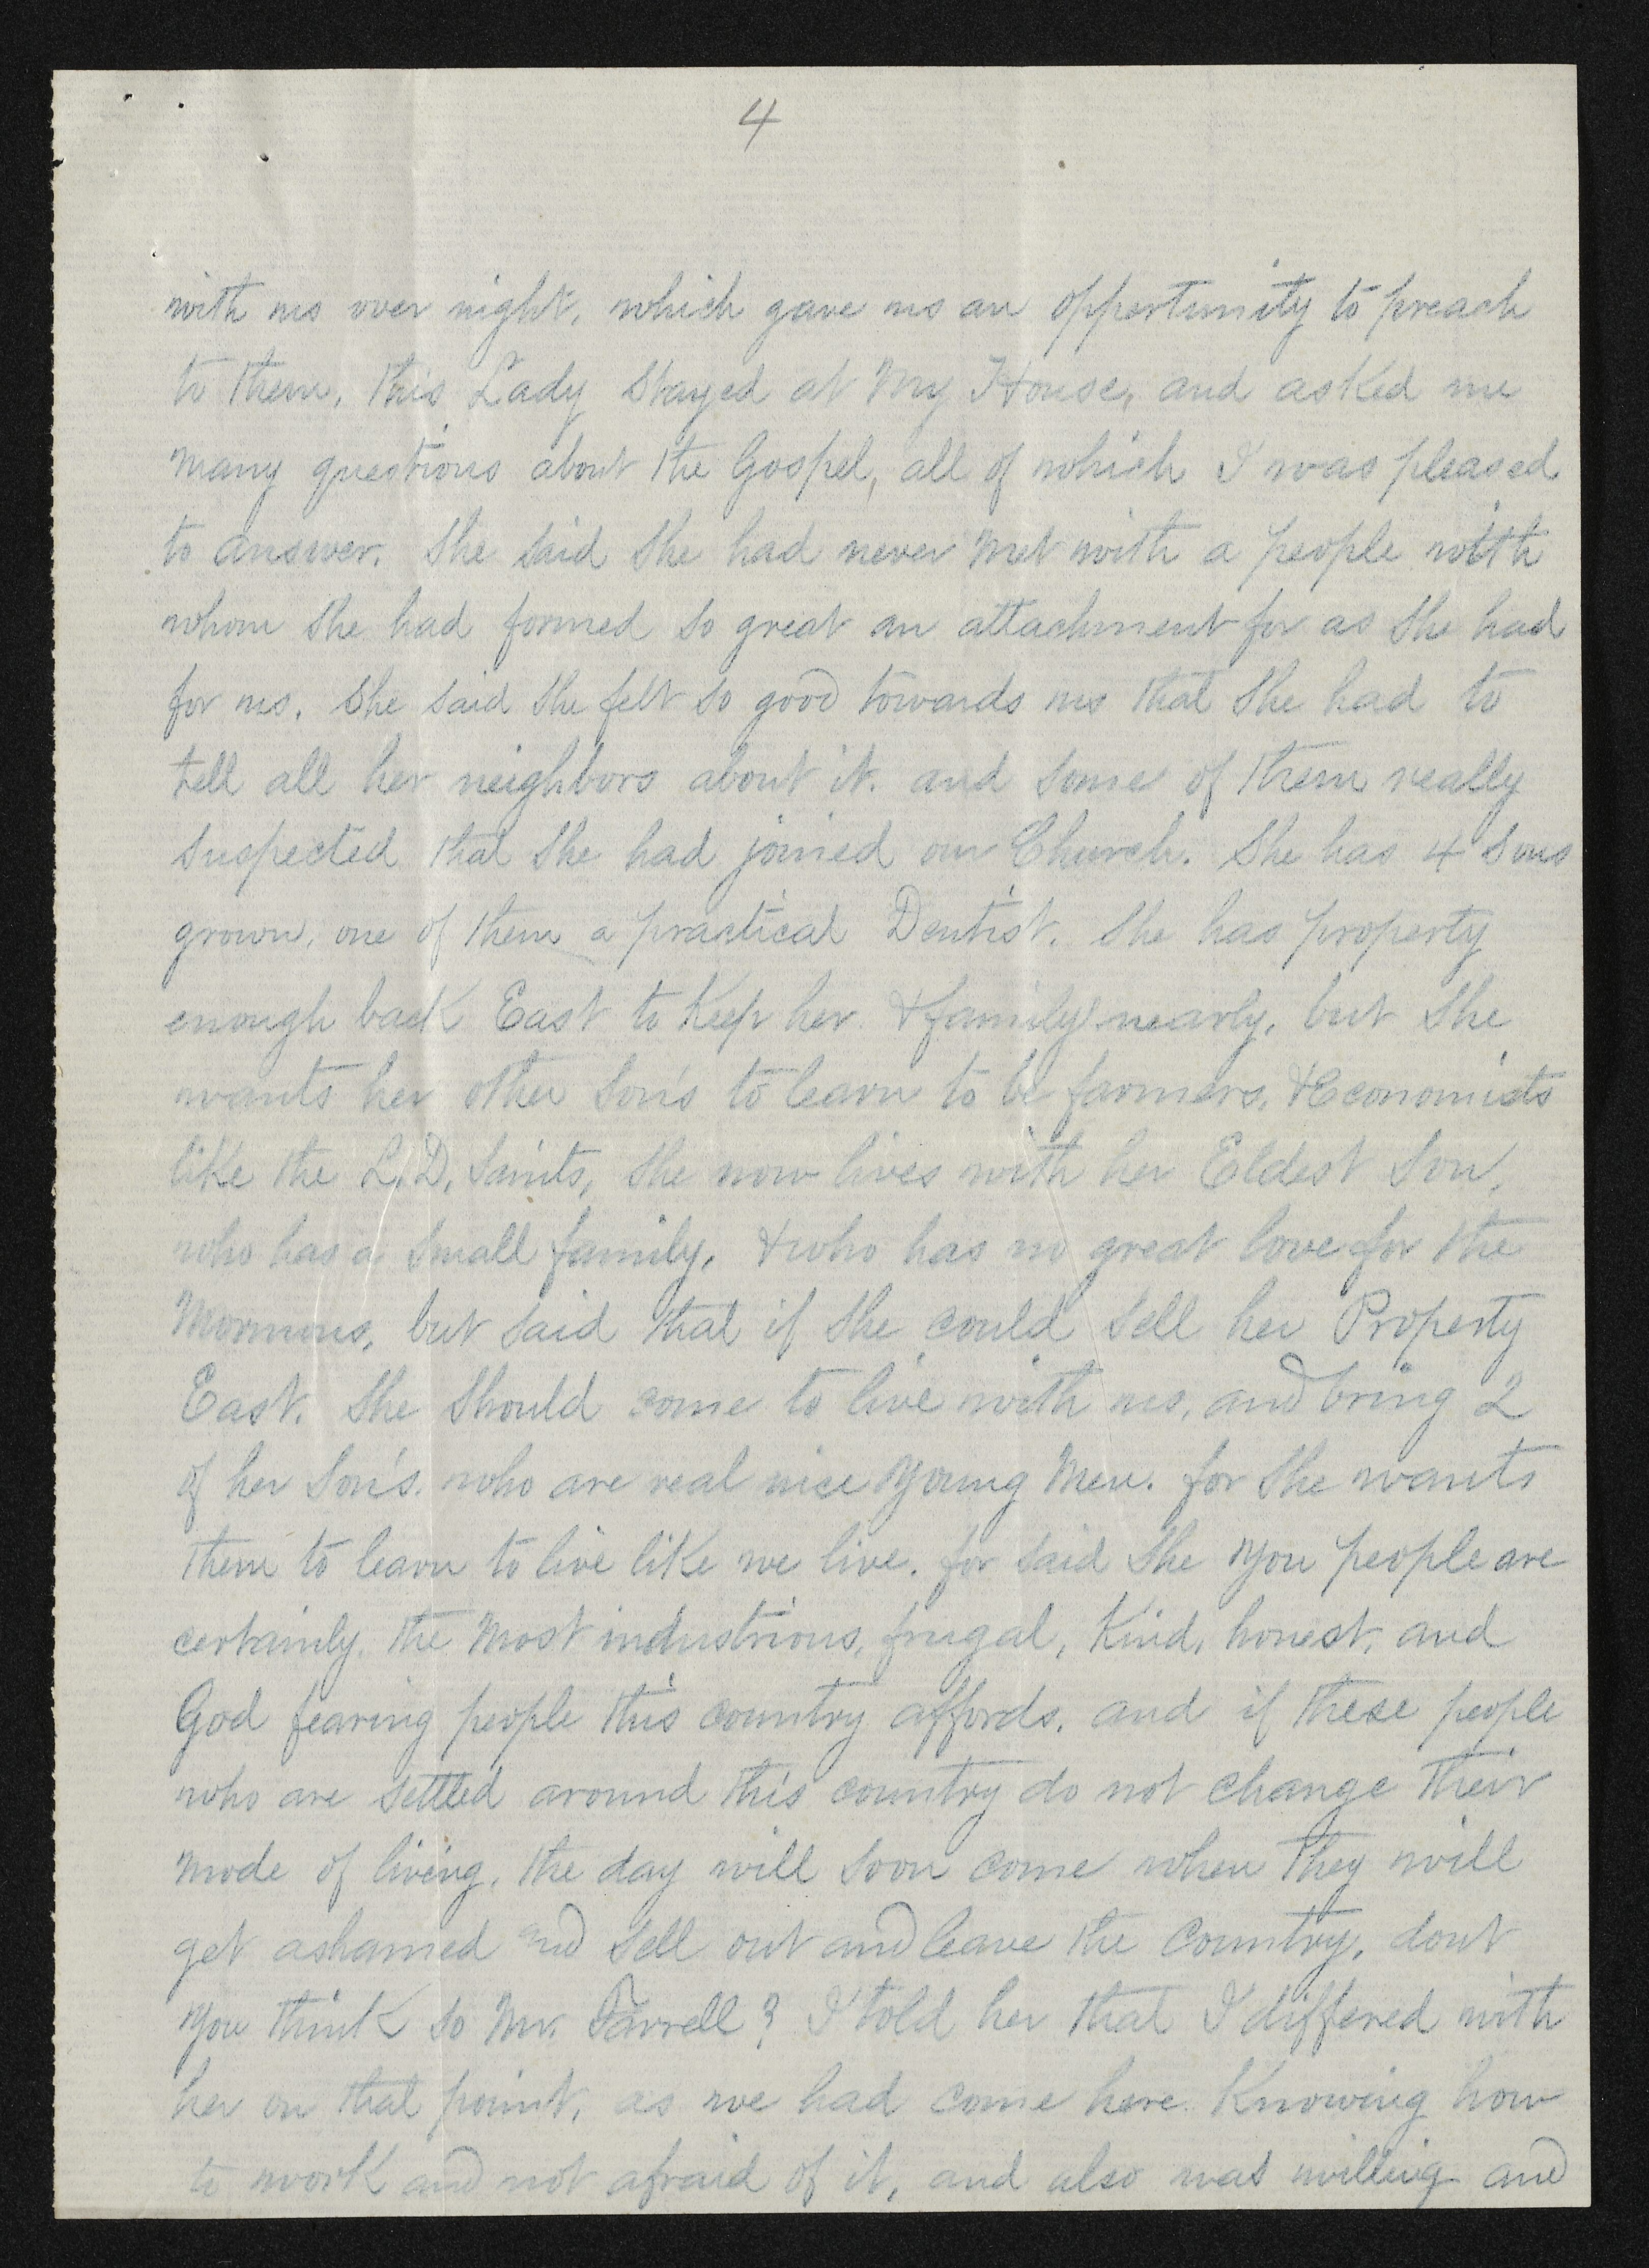 4
with us over night, which gave us an oppertunity to preach
to them, this Lady Stayed at My House, and asked me
many questions about the Gospel, all of which I was pleased
to answer. She said She had never met with a people with
whom she had formed so great an attachment for as She had
for us. She said She felt so good towards us that She had to
tell all her neighbors about it. and some of them really
suspected that She had joined our Church. She has 4 Sons
grown, one of them a practical Dentist. She has property
enough back East to Keep her & family nearly, but She
wants her other Son's to learn to be farmers, & Economists
like the L.D. Saints, She now lives with her Eldest Son,
who has a small family, & who has no great love for the
Mormons, but said that if She could Sell her Property
East. She Should come to live with us, and bring 2
of her Son's. who are real nice Young Men. for She wants
them to learn to live like we live. for said She You people are
certainly, the most industrious, frugal, Kind, honest, and
God fearing people this country affords, and if these people
who are settled around this country do not change their
mode of living, the day will soon come when they will
get ashamed and Sell out and leave the Country, dont
You think so Mr. Farrell? I told her that I differed with
her on that point, as we had come here Knowing how
to work and not afraid of it, and also was willing and